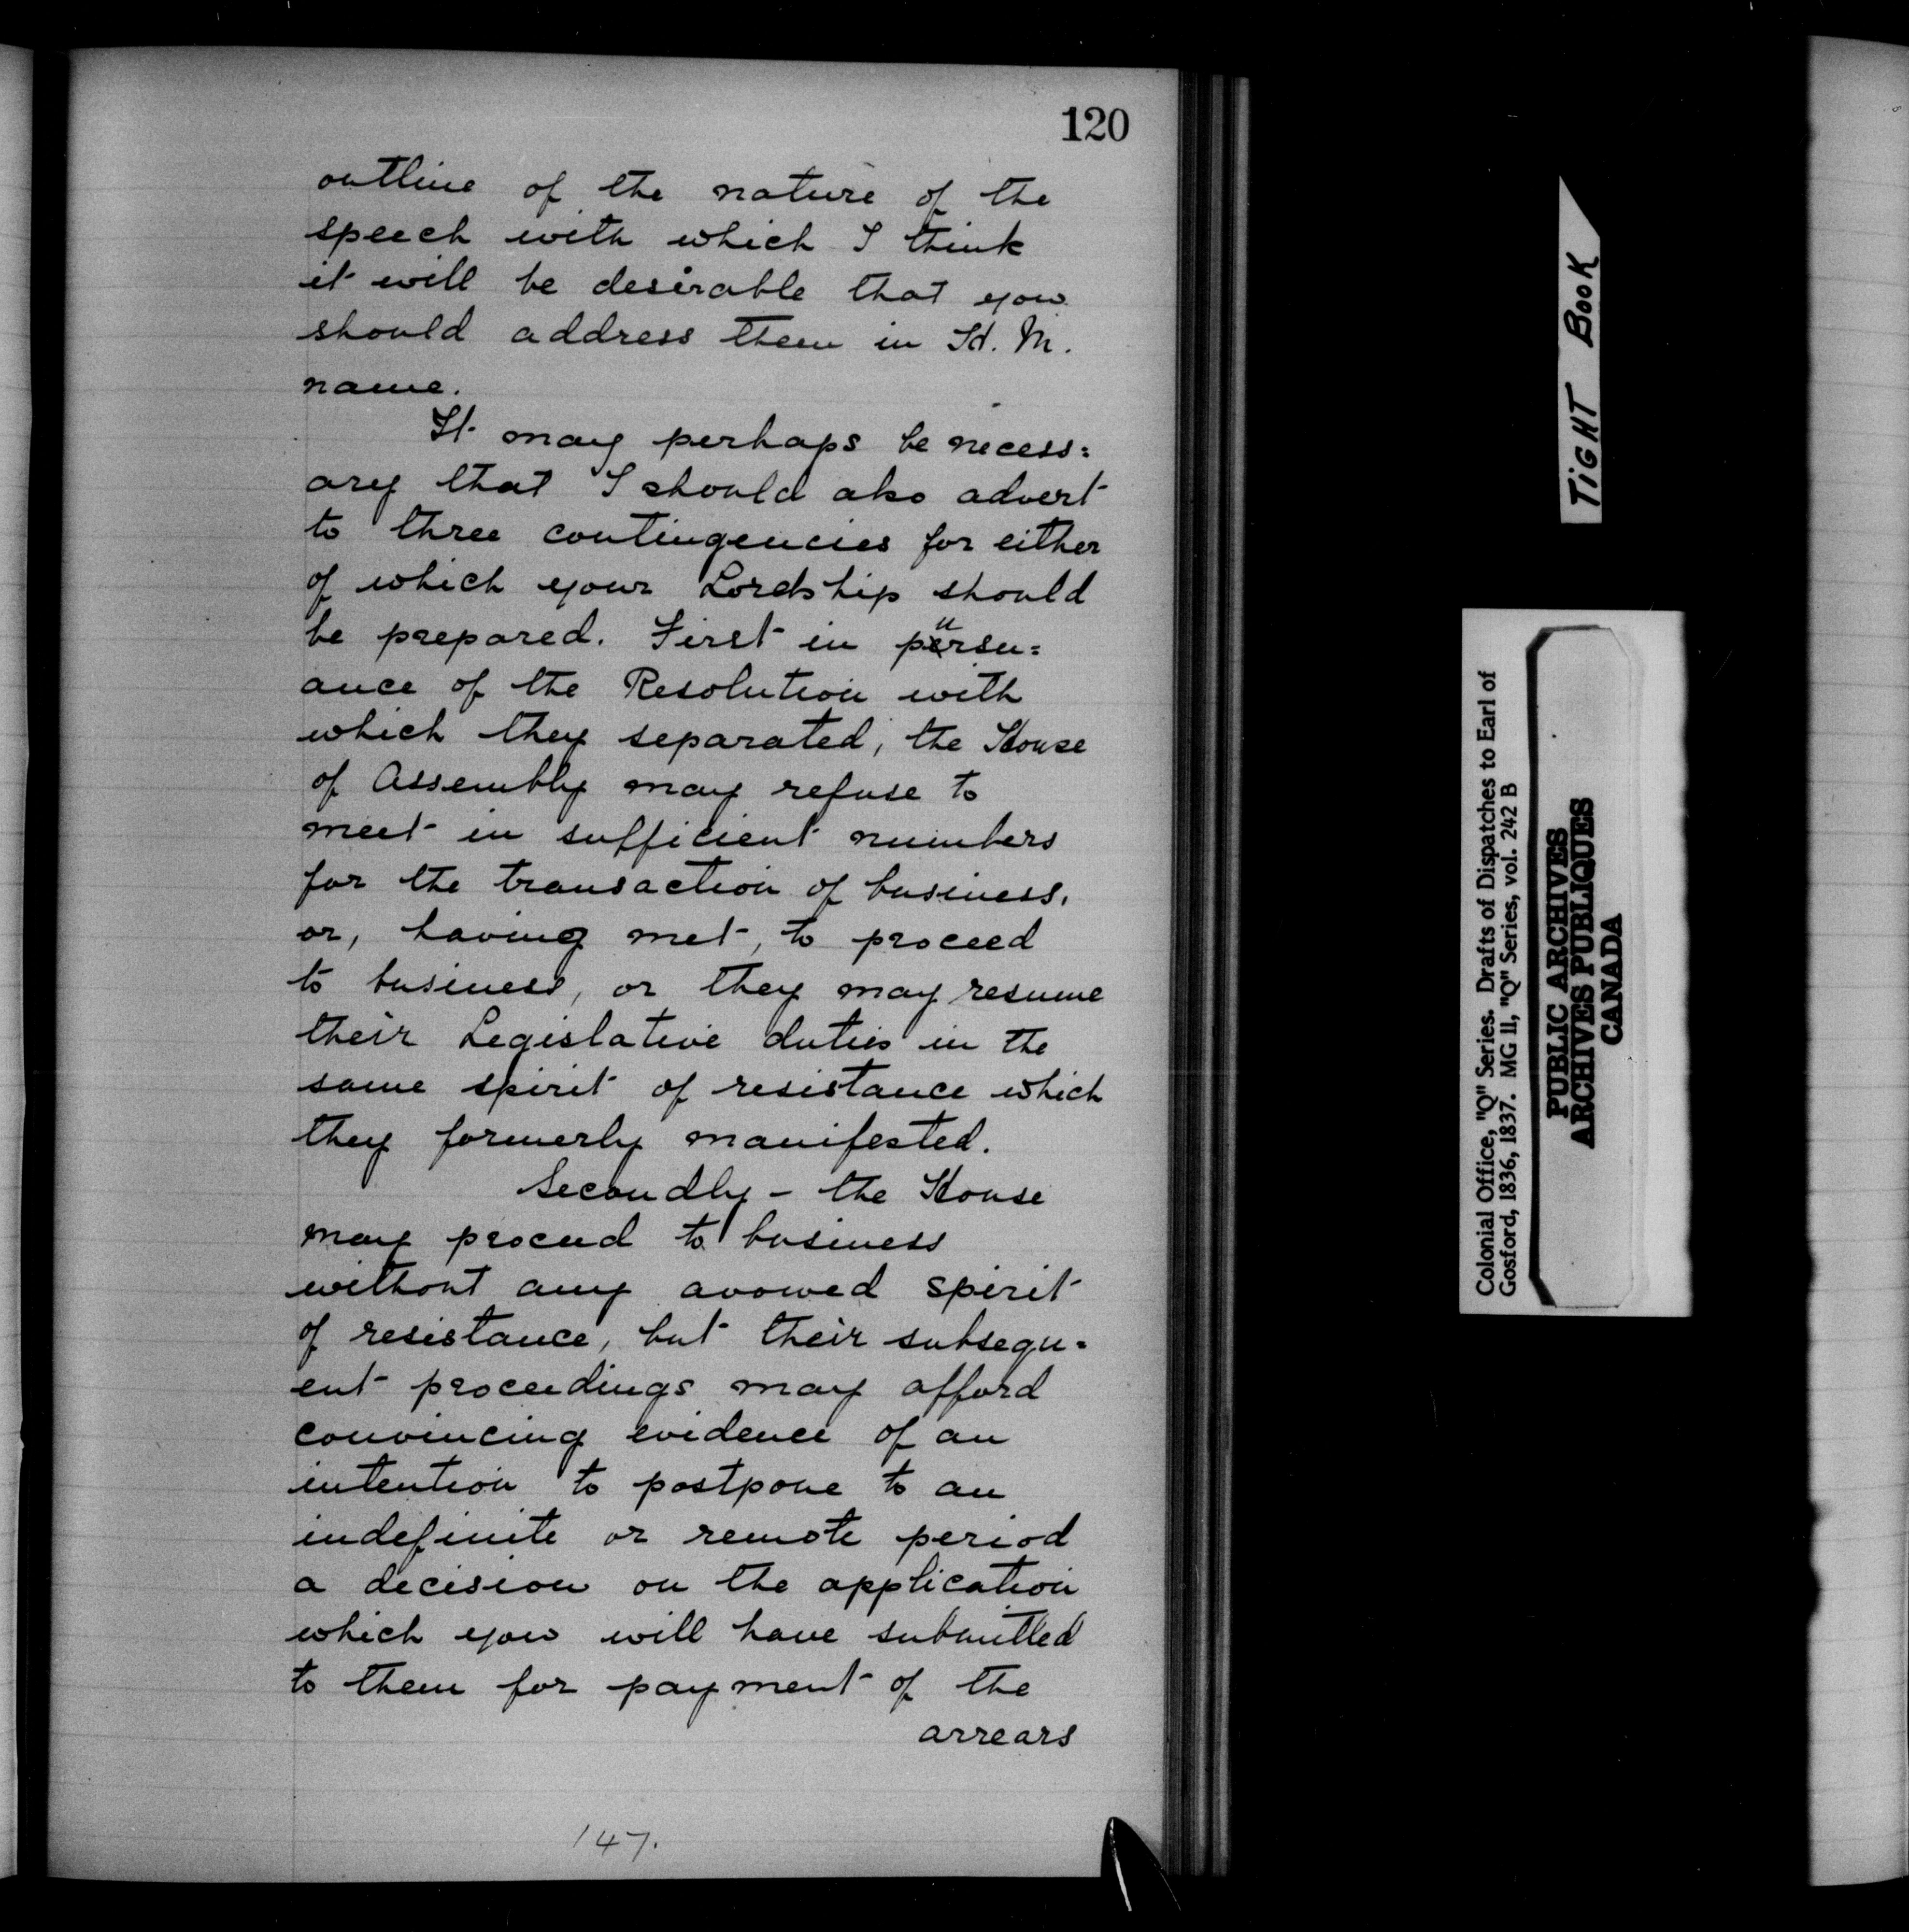 120
outline of the nature of the
speech with which I think
it will be desirable that you
should address them in H. M.
name.
It may perhaps be necess=
ary that I should also advert
to three contingencies for either
of which your Lordship should
be prepared. First in pursu=
ance of the Resolution with
which they separated, the House
of Assembly may refuse to
meet in sufficient numbers
for the transaction of business,
or, having met, to proceed
to business, or they may resume
their Legislative duties in the
same spirit of resistance which
they formerly manifested.
Secondly - the House
may proceed to business
without any avowed spirit
of resistance, but their subsequ=
ent proceedings may afford
convincing evidence of an
intention to postpone to an
indefinite or remote period
a decision on the application
which you will have submitted
to them for payment of the
arrears
147.
TIGHT BOOK
Colonial Office, "Q" Series. Drafts of Dispatches to Earl of
Gosford, 1836, 1837. MG 11, "Q" Series, vol. 242 B
PUBLIC ARCHIVES
ARCHIVES PUBLIQUES
CANADA